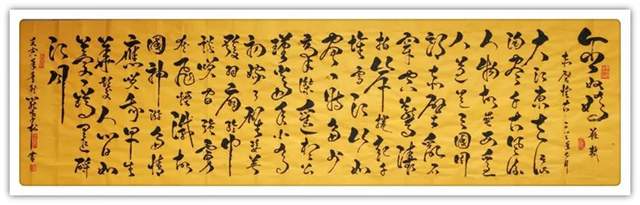 念奴娇 苏轼
赤壁怀古
大江东去浪
淘尽千古风流
人物故垒西边
人道是三国周
郎赤壁乱石
穿空惊涛
拍岸捲起千
堆雪江山如
画一时多少
豪杰遥想公
瑾当年小乔
初嫁了雄姿英
发羽扇纶巾
谈笑间樯虏
灰飞烟灭故
国神游多情
应笑我早生
华发人间如
梦一尊还酹
江月